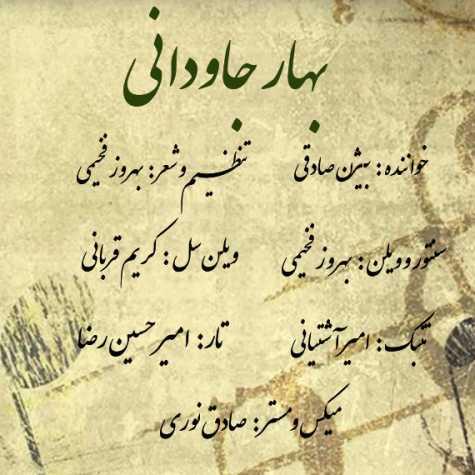 بهار جاودانی
خواننده : بیژن صادقی تنظیم و شعر: بهروز فخیمی
سنتور و ویلن : بهروز فخیمی ویلن سل : کریم قربانی
تنبک : امیر آشتیانی تار : امیر حسین رضا
میکس و مستر : صادق نوری